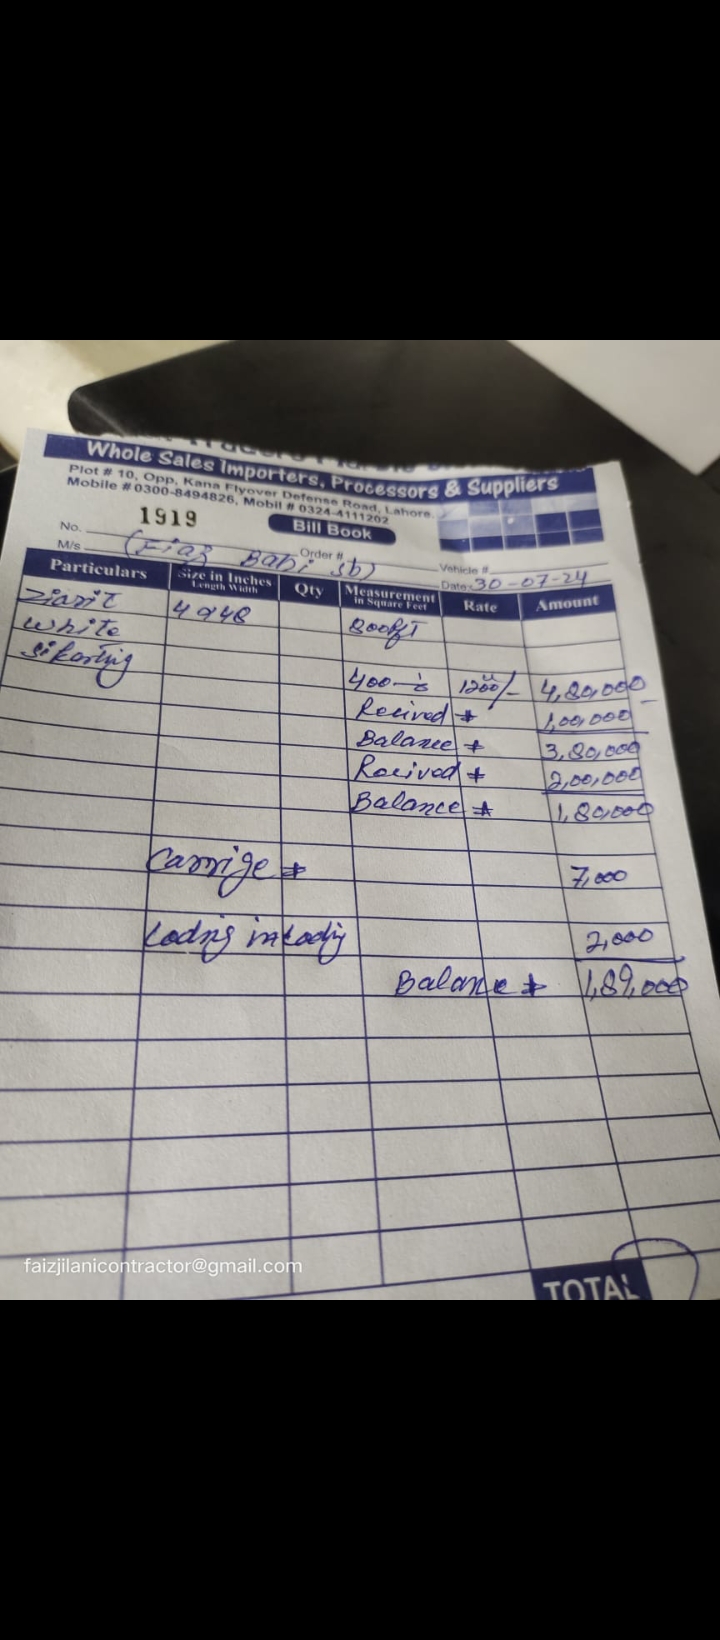 Whole Sales Importers, Processors & Suppliers
Plot # 10, Opp, Kana Flyover Defense Road, Lahore.
Mobile # 0300-8494826, Mobil # 0324-4111202
No. 1919 Bill Book
M/s Order # Vehicle #
Date: 30-07-24
Particulars Size in Inches Length Width Qty Measurement in Square Feet Rate Amount
Ziarit 4 x 48 800 ft
White
400 1200/- 4,80,000
Recived 1,00,000
Balance 3,80,000
Recived 2,00,000
Balance 1,80,000
Carrige 7,000
Loding 2,000
Balance 1,89,000
TOTAL
faizjilanicontractor@gmail.com